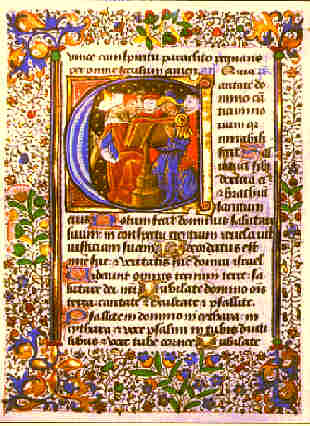 unice cum spiritu paraclito regnans
per omne seculum amen Quia
Cantate do
mino cā
ticum no
uum quia
mirabilia
fecit Sal
uauit sibi
dextera ei
et brachiū
sanctum
eius Notum fecit dominus salutare
suum in conspectu gentium reuelauit
iusticiam suam Recordatus est
mie sue et ueritatis sue domui israel
Viderunt omnes termini terre sa
lutare dei nri Iubilate domino ois
terra cantate et exultate et psallite
Psallite domino in cythara in
cythara et uoce psalmi in tubis ducti
libus et uoce tube cornee Iubilate